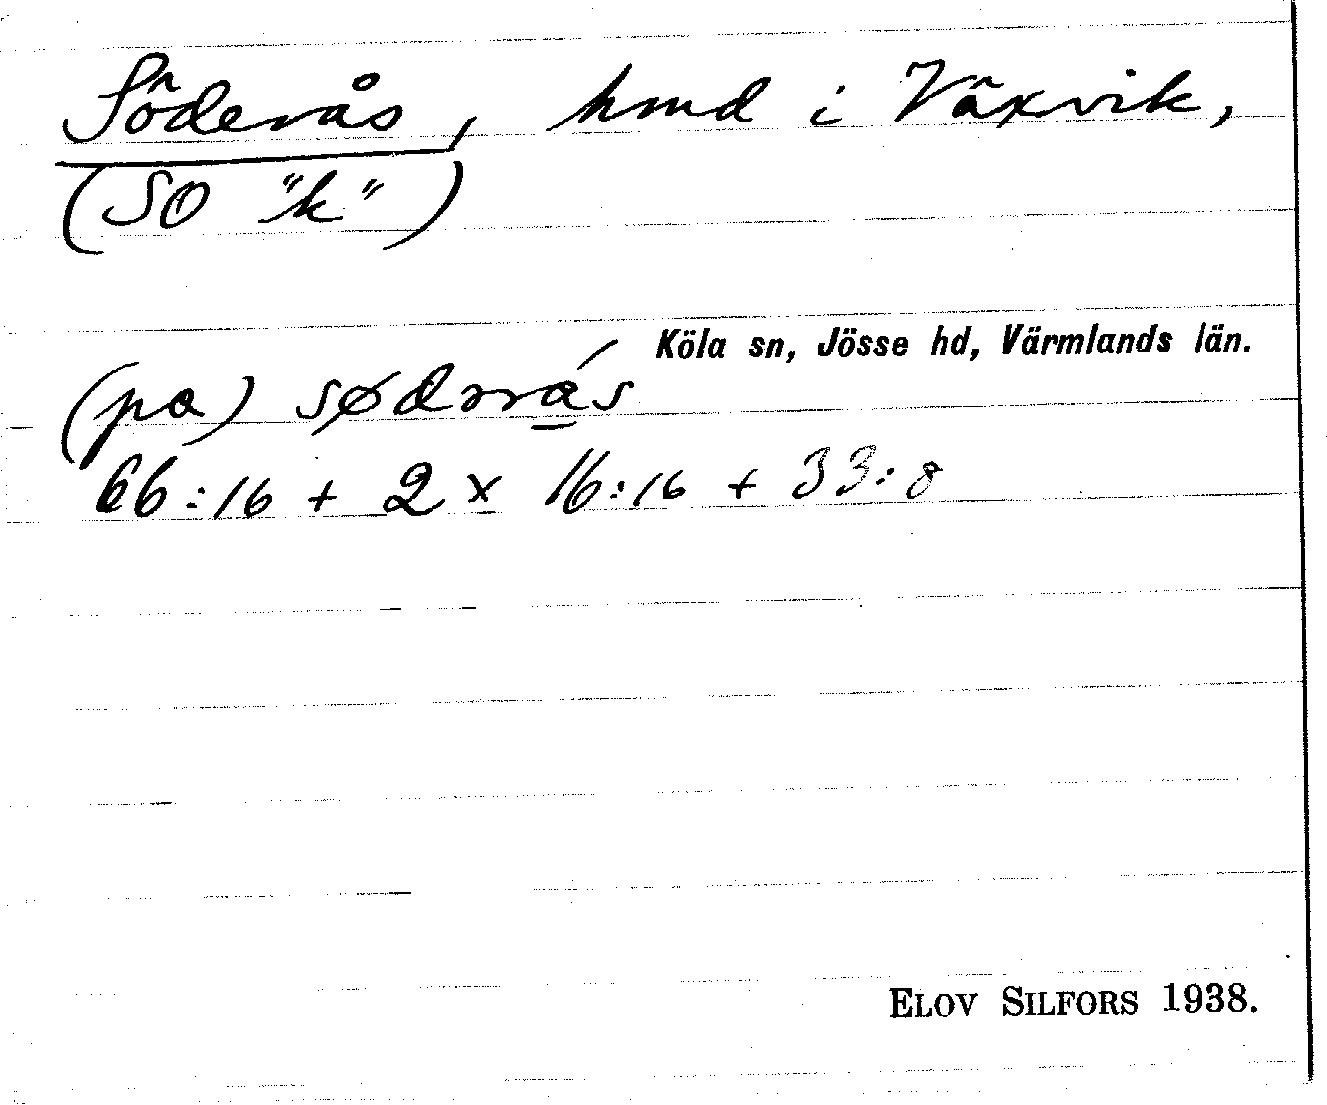 Söderås, hmd i Växvik,
(SO "k")
Köla sn, Jösse hd, Värmlands län.
(pa) sødɘrás
66:16 + 2 x 16:16 + 33:8
ELOV SILFORS 1938.